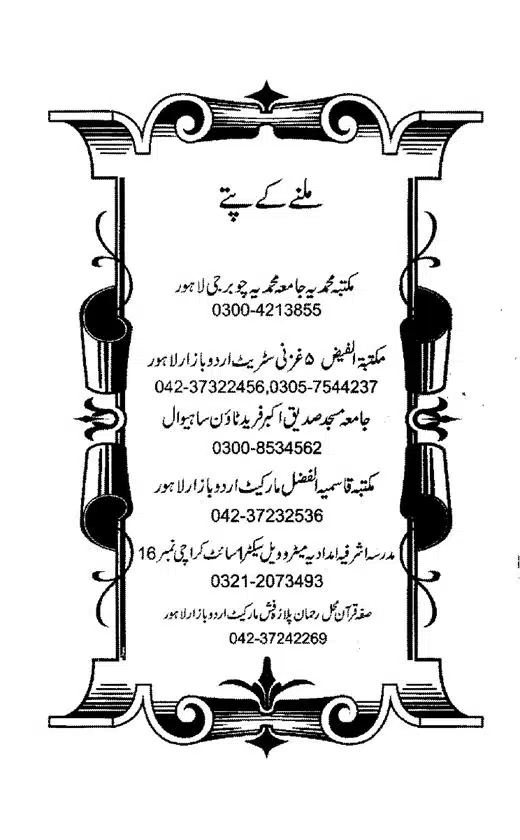 ملنے کے پتے
مکتبہ محمدیہ جامعہ محمدیہ چوبرجی لاہور
0300-4213855
مکتبۃ الفیض ۵ غزنی سٹریٹ اردو بازار لاہور
042-37322456,0305-7544237
جامعہ مسجد صدیق اکبر فرید ٹاؤن ساہیوال
0300-8534562
مکتبہ قاسمیہ الفضل مارکیٹ اردو بازار لاہور
042-37232536
مدرسہ اشرفیہ امدادیہ میٹروویل سیکٹر 1 سائٹ کراچی نمبر 16
0321-2073493
صفہ قرآن محل رحمان پلازہ فش مارکیٹ اردو بازار لاہور
042-37242269